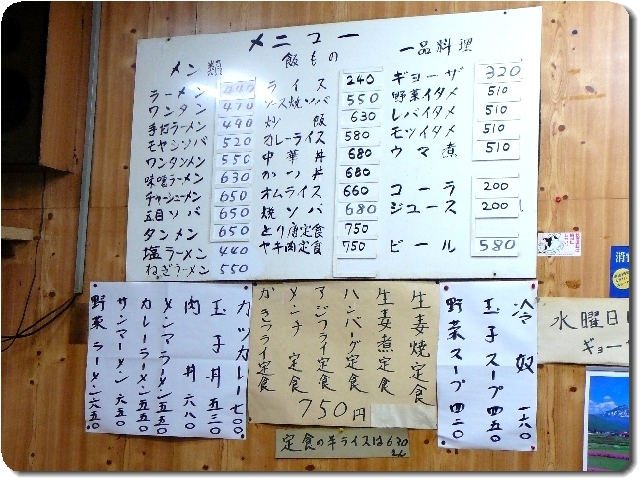 メニュー
メン類
ラーメン 440
ワンタン 470
手打ラーメン 490
モヤシソバ 520
ワンタンメン 550
味噌ラーメン 630
チャーシューメン 650
五目ソバ 650
タンメン 650
塩ラーメン 440
ねぎラーメン 550
飯もの
ライス 240
ソース焼ソバ 550
炒飯 630
カレーライス 580
中華丼 680
かつ丼 680
オムライス 660
焼ソバ 680
とり唐定食 750
ヤキ肉定食 750
一品料理
ギョーザ 320
野菜イタメ 510
レバイタメ 510
モツイタメ 510
ウマ煮 510
コーラ 200
ジュース 200
ビール 580
カツカレー 七〇〇
玉子丼 五三〇
肉丼 六八〇
メンマラーメン 五五〇
カレーラーメン 五五〇
サンマーメン 六五〇
野菜ラーメン 六五〇
生姜焼定食
生姜煮定食
ハンバーグ定食
アジフライ定食
メンチ定食
かきフライ定食
750円
冷奴 一六〇
玉子スープ 四五〇
野菜スープ 四二〇
定食の半ライスは630えん
水曜日
ギョー
消